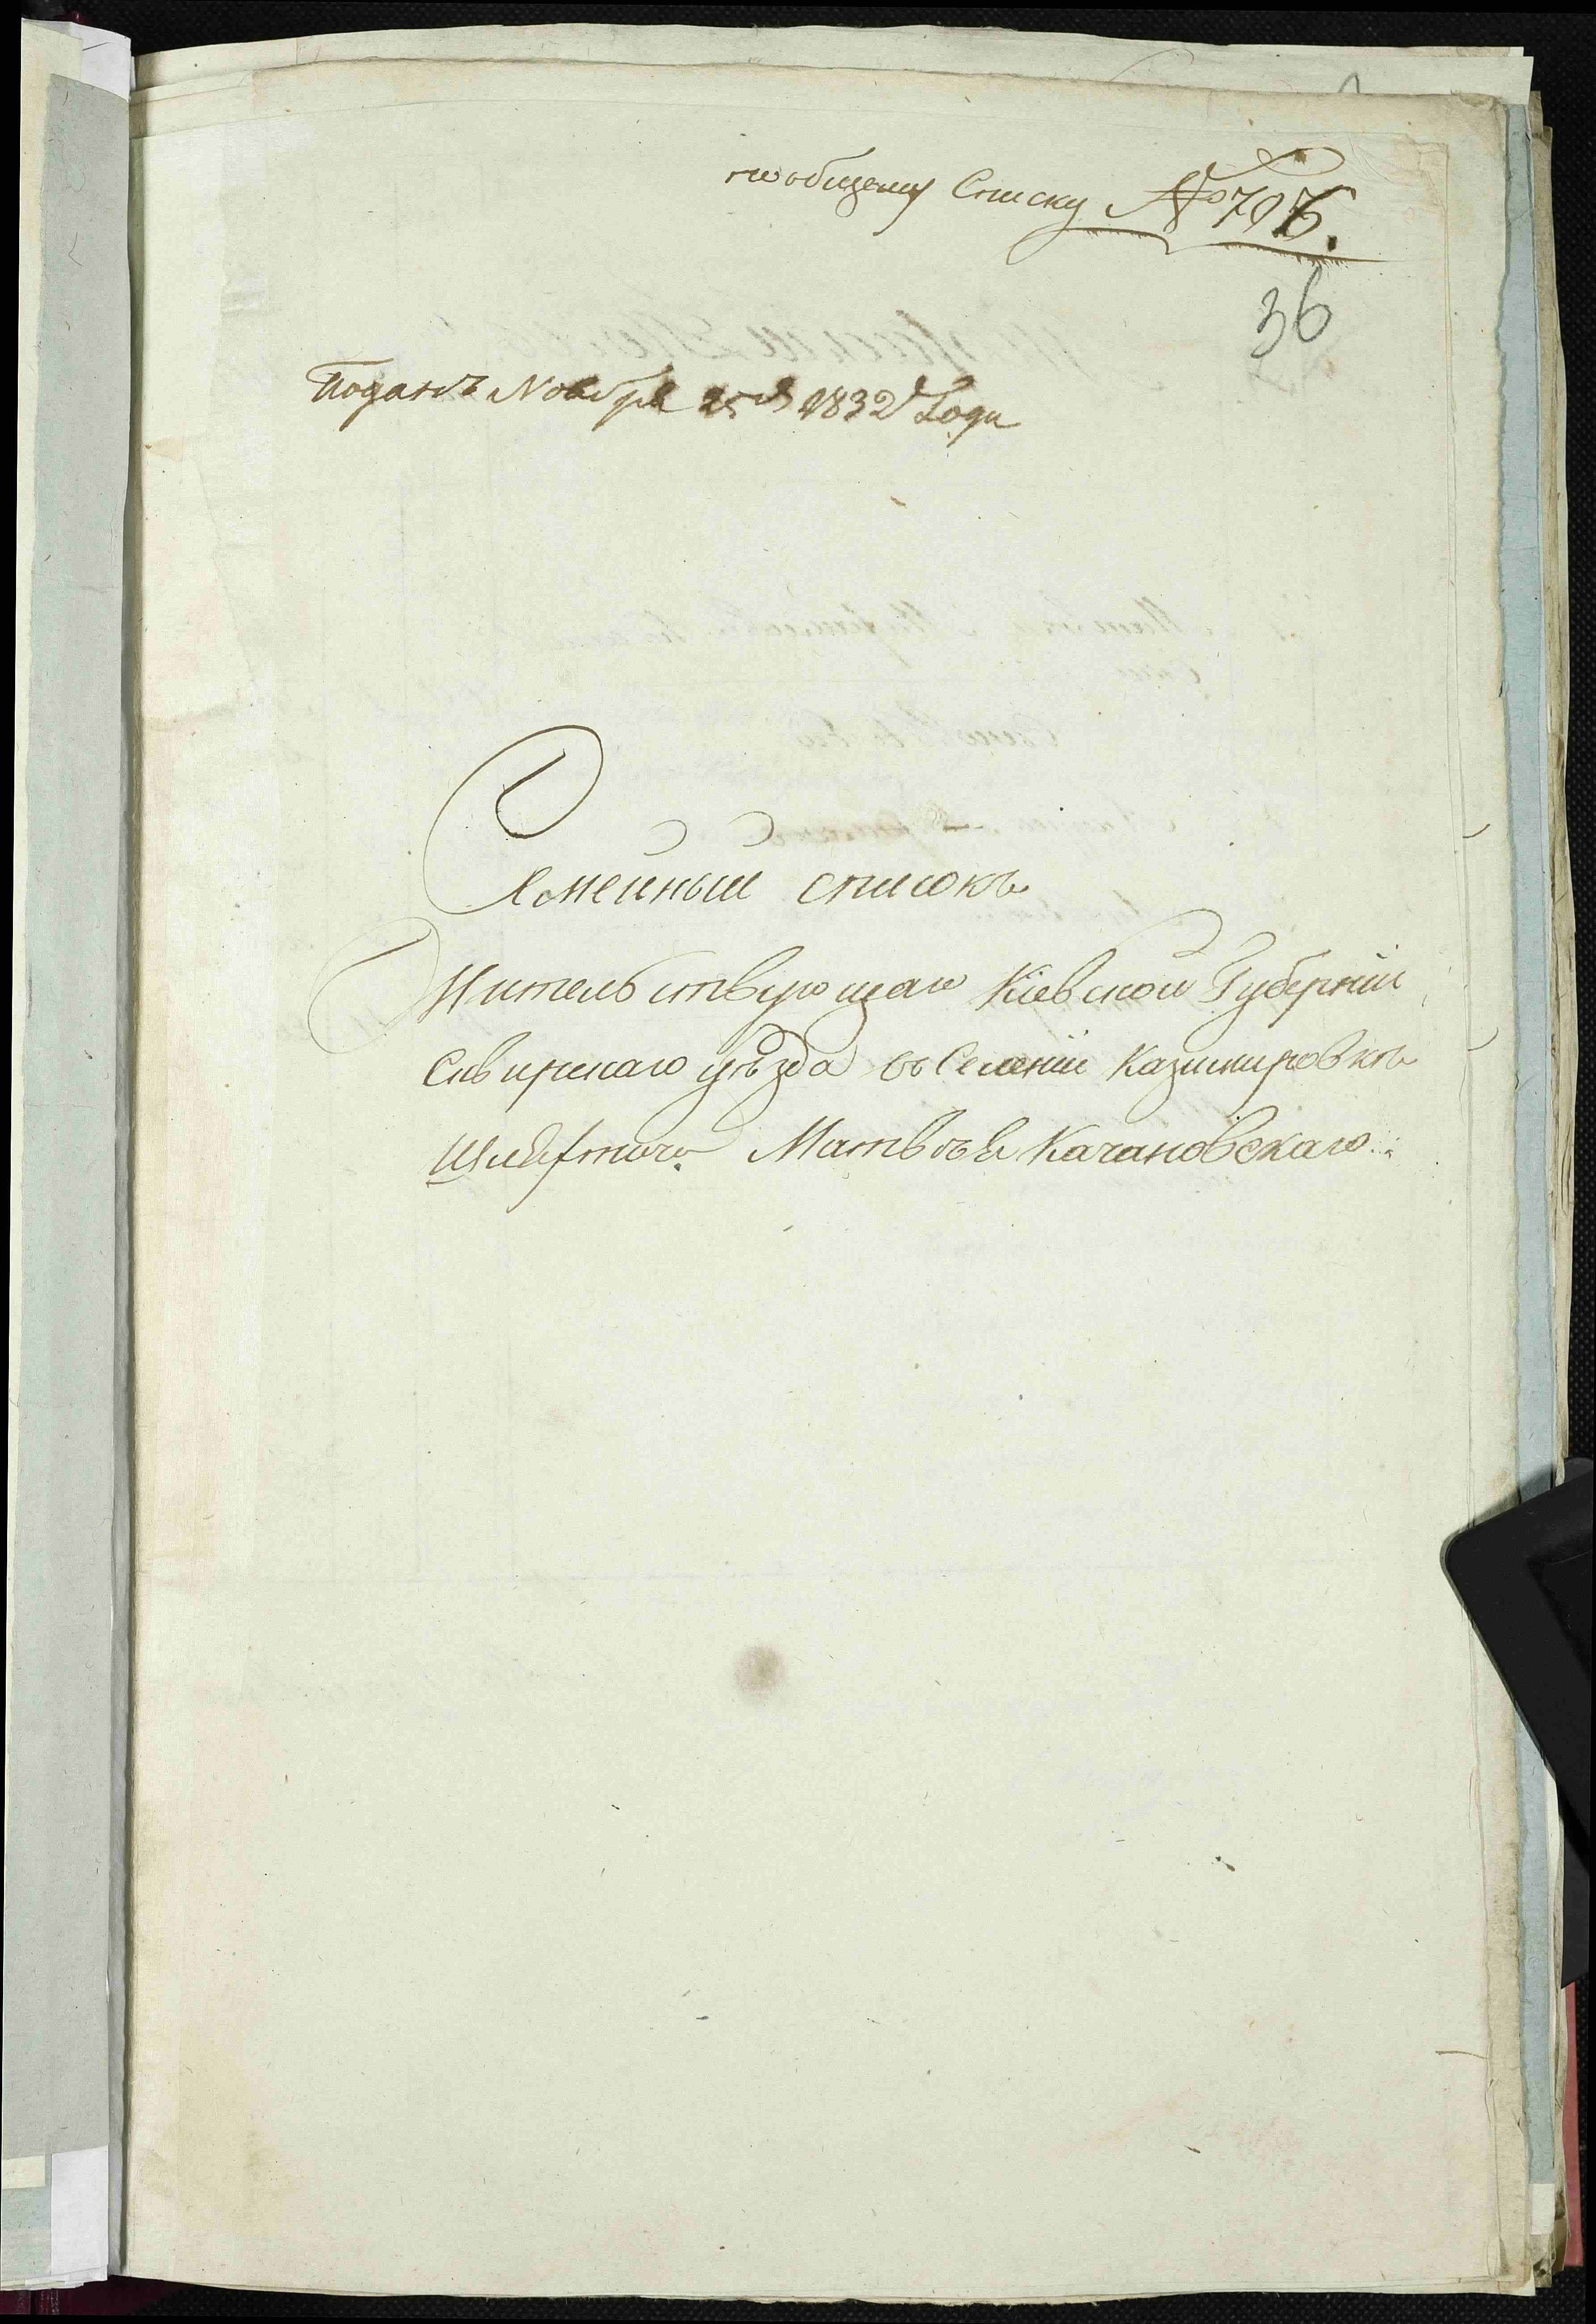 по общему Списку № 706.
36
Поданъ Ноября 25го 1832 Года
Семейный списокъ
Жительствующаго Кіевской Губерніи
Сквирскаго уѣзда въ Селеніи Казимировкѣ
Шляхтича Матвѣя Качановскаго